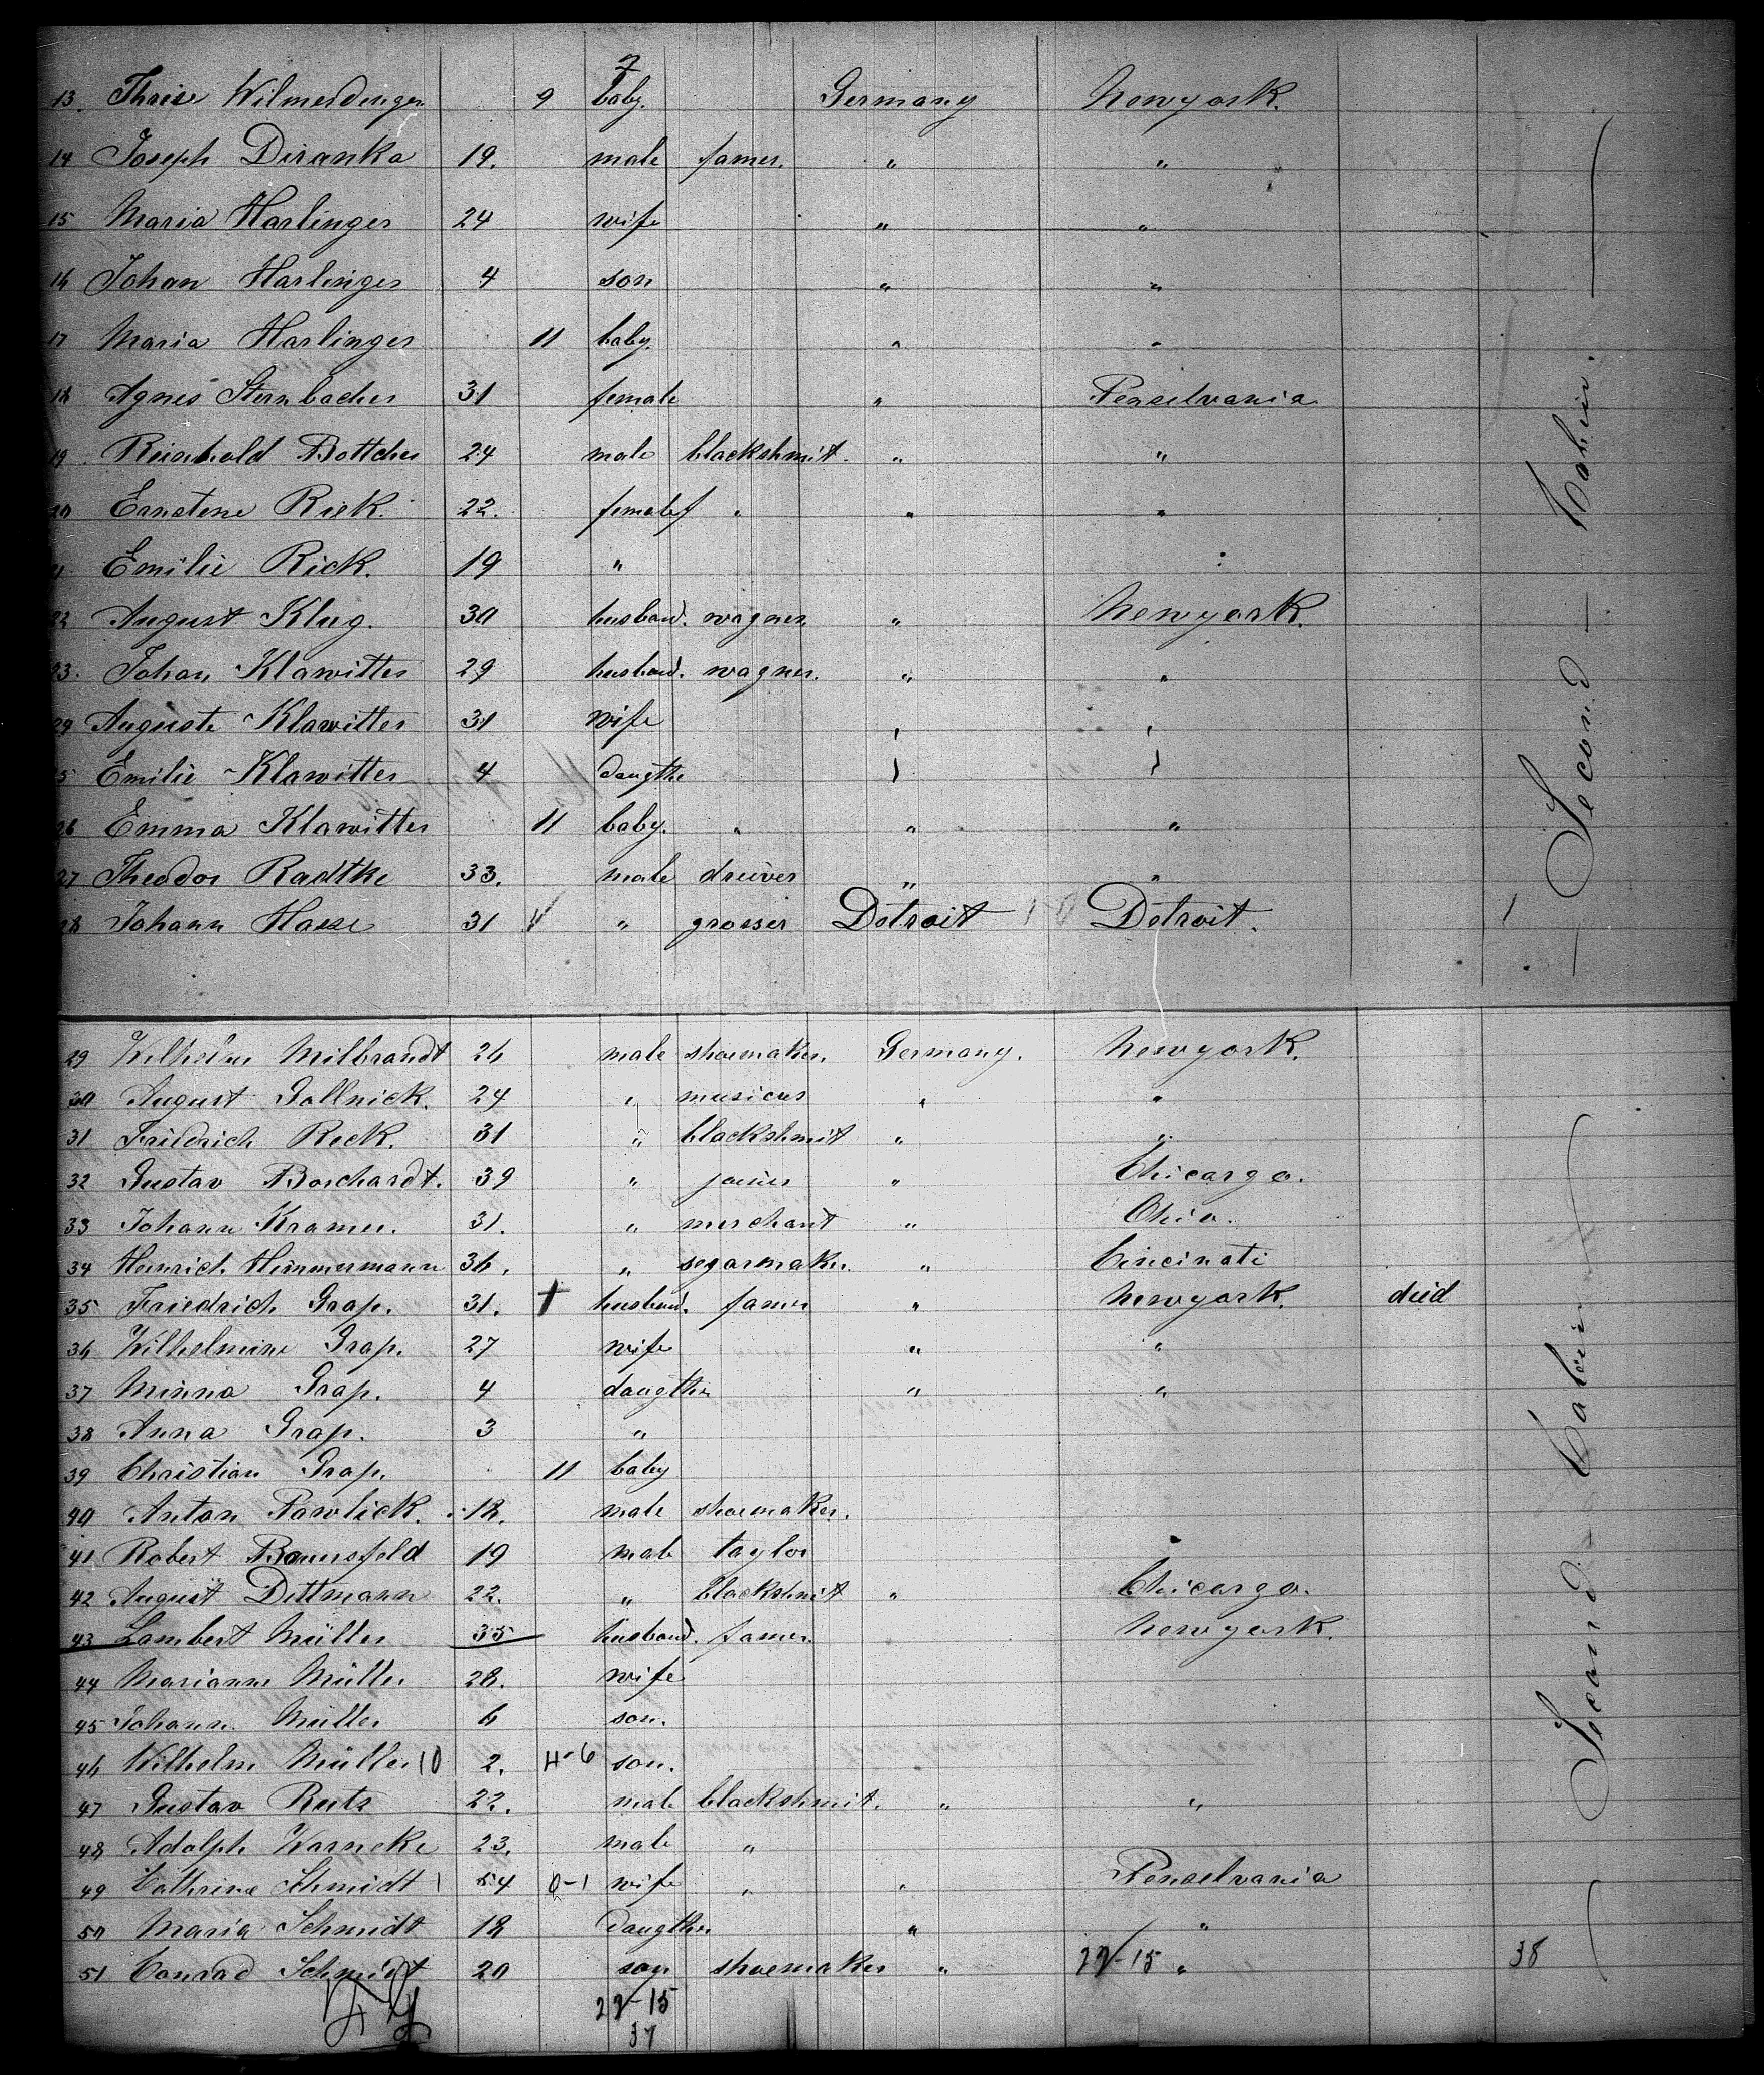 7
13. Threse Wilmerdinger 9 baby. Germany Newyork.
14 Joseph Diranka 19. male famer. " "
15 Maria Harlinger 24 wife " "
16 Johan Harlinger 4 son " "
17 Maria Harlinger 11 baby. " "
18 Agnes Sternbacher 31 female " Penselvania
19. Reinhold Bottcher 24 male blackshmit. " "
20 Earnstene Rick. 22. female " " "
Emilie Rick. 19 " "
22 August Klug. 30 husband. wagner " Newyork.
23. Johan Klawitter 29 husband. wagner. " "
24 Auguste Klawitter 31 wife " "
25 Emilie Klawitter 4 daugthe " "
26 Emma Klawitter 11 baby. " " "
27 Theodor Radtke 33. male dreiver " "
28 Johann Hasse 31 " grosser Detroit Detroit.
— Second — Cabin. —
29 Wilhelm Milbrandt 26 male shoemaker. Germany. Newyork.
30 August Gollnick. 24 " musicus " "
31 Friderich Reck. 31 " blackshmit " "
32 Gustav Borchardt. 39 " joiner " Chicargo.
33 Johann Kramer. 31. " merchant " Ohio.
34 Heinrich Himmermann 36. " segarmaker. " Cincinati
35 Friedrich Grap. 31. + husband. famer " Newyork. deid
36 Wilhelmine Grap. 27 wife " "
37 Minna Grap. 4 daugther " "
38 Anna Grap. 3 "
39 Christian Grap. 11 baby
40 Anton Pawlick. 18. male shoemaker.
41 Robert Bauersfeld 19 male taylor
42 August Dittmann 22. " blackshmit " Chicargo.
43 Lambert Müller 35 husband. famer. Newyork.
44 Marianne Müller 28. wife
45 Johann Müller 6 son.
46 Wilhelm Müller 10 2. 4-6 son.
47 Gustav Rutz 22. male blackshmit. " "
48 Adolph Warneke 23. male "
49 Cathrine Schmidt 1 54 0-1 wife " " Penselvania
50 Maria Schmidt 18 Daugther " "
51 Conrad Schmidt 20 son shoemaker " 22-15 " 38
22-15
37
Second Cabin